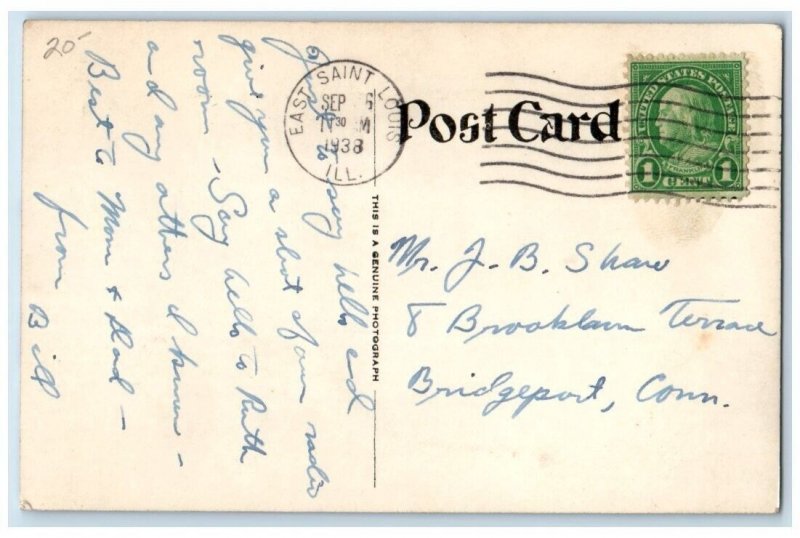 20
EAST SAINT LOUIS
SEP 6
11 30 M
1938
ILL.
Post Card
UNITED STATES POSTAGE
FRANKLIN
1 CENT 1
Just to say hello and
give you a shot of our radio
room - Say hello to Ruth
and any others I know -
Best to Mom & Dad -
from Bill
THIS IS A GENUINE PHOTOGRAPH
Mr. J. B. Shaw
8 Brooklawn Terrace
Bridgeport, Conn.